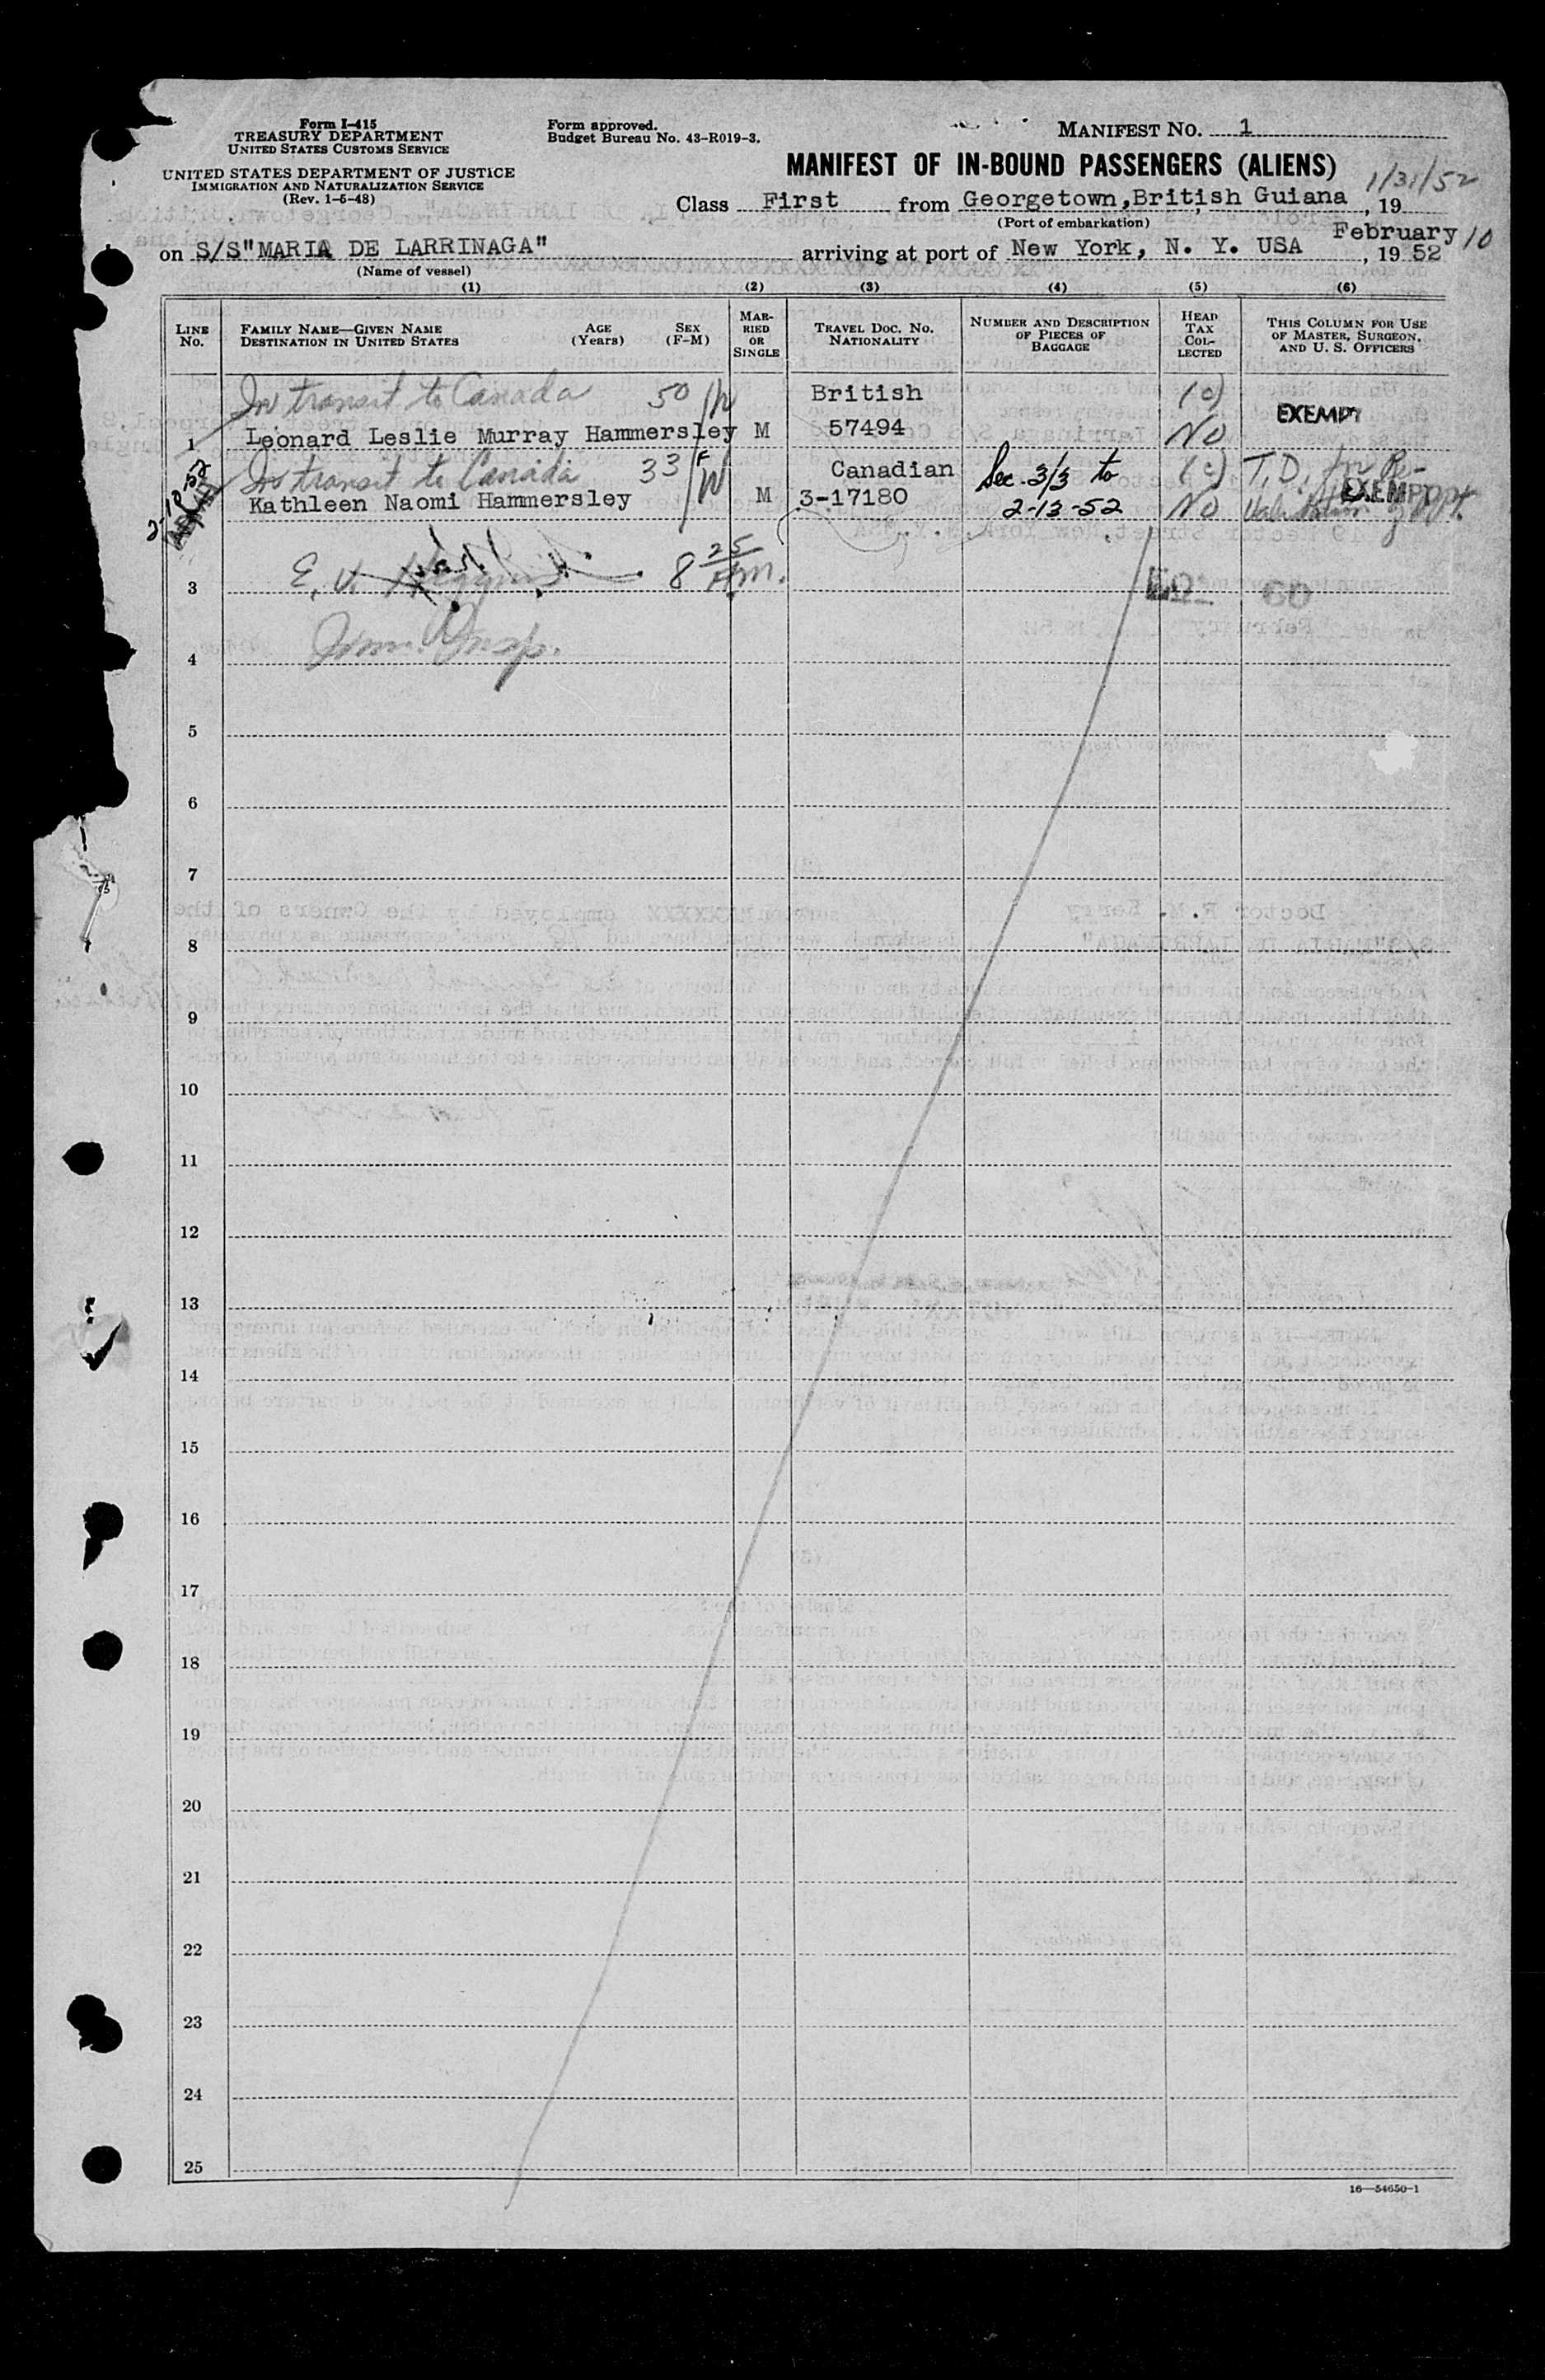 Form I-415
TREASURY DEPARTMENT
UNITED STATES CUSTOMS SERVICE
UNITED STATES DEPARTMENT OF JUSTICE
IMMIGRATION AND NATURALIZATION SERVICE
(Rev. 1-5-48)
Form approved.
Budget Bureau No. 43-R019-3.
MANIFEST NO. 1
MANIFEST OF IN-BOUND PASSENGERS (ALIENS)
1/31/52
Class First from Georgetown,British Guiana, 19
(Port of embarkation)
on S/S"MARIA DE LARRINAGA" arriving at port of New York, N. Y. USA February 10, 1952
(Name of vessel)
(1) (2) (3) (4) (5) (6)
LINE NO.
FAMILY NAME—GIVEN NAME
DESTINATION IN UNITED STATES
AGE (Years)
SEX (F-M)
MARRIED OR SINGLE
TRAVEL DOC. NO.
NATIONALITY
NUMBER AND DESCRIPTION OF PIECES OF BAGGAGE
HEAD TAX COLLECTED
THIS COLUMN FOR USE OF MASTER, SURGEON, AND U. S. OFFICERS
In transit to Canada 50 British (c)
1 Leonard Leslie Murray Hammersley M 57494 NO EXEMPT
In transit to Canada 33 F Canadian Sec. 3/3 to (c) T.D.
Kathleen Naomi Hammersley M 3-17180 2-13-52 NO EXEMPT
3 E. V. 8 25 A.m.
4 Imm. Insp.
5
6
7
8
9
10
11
12
13
14
15
16
17
18
19
20
21
22
23
24
25
16—54650-1